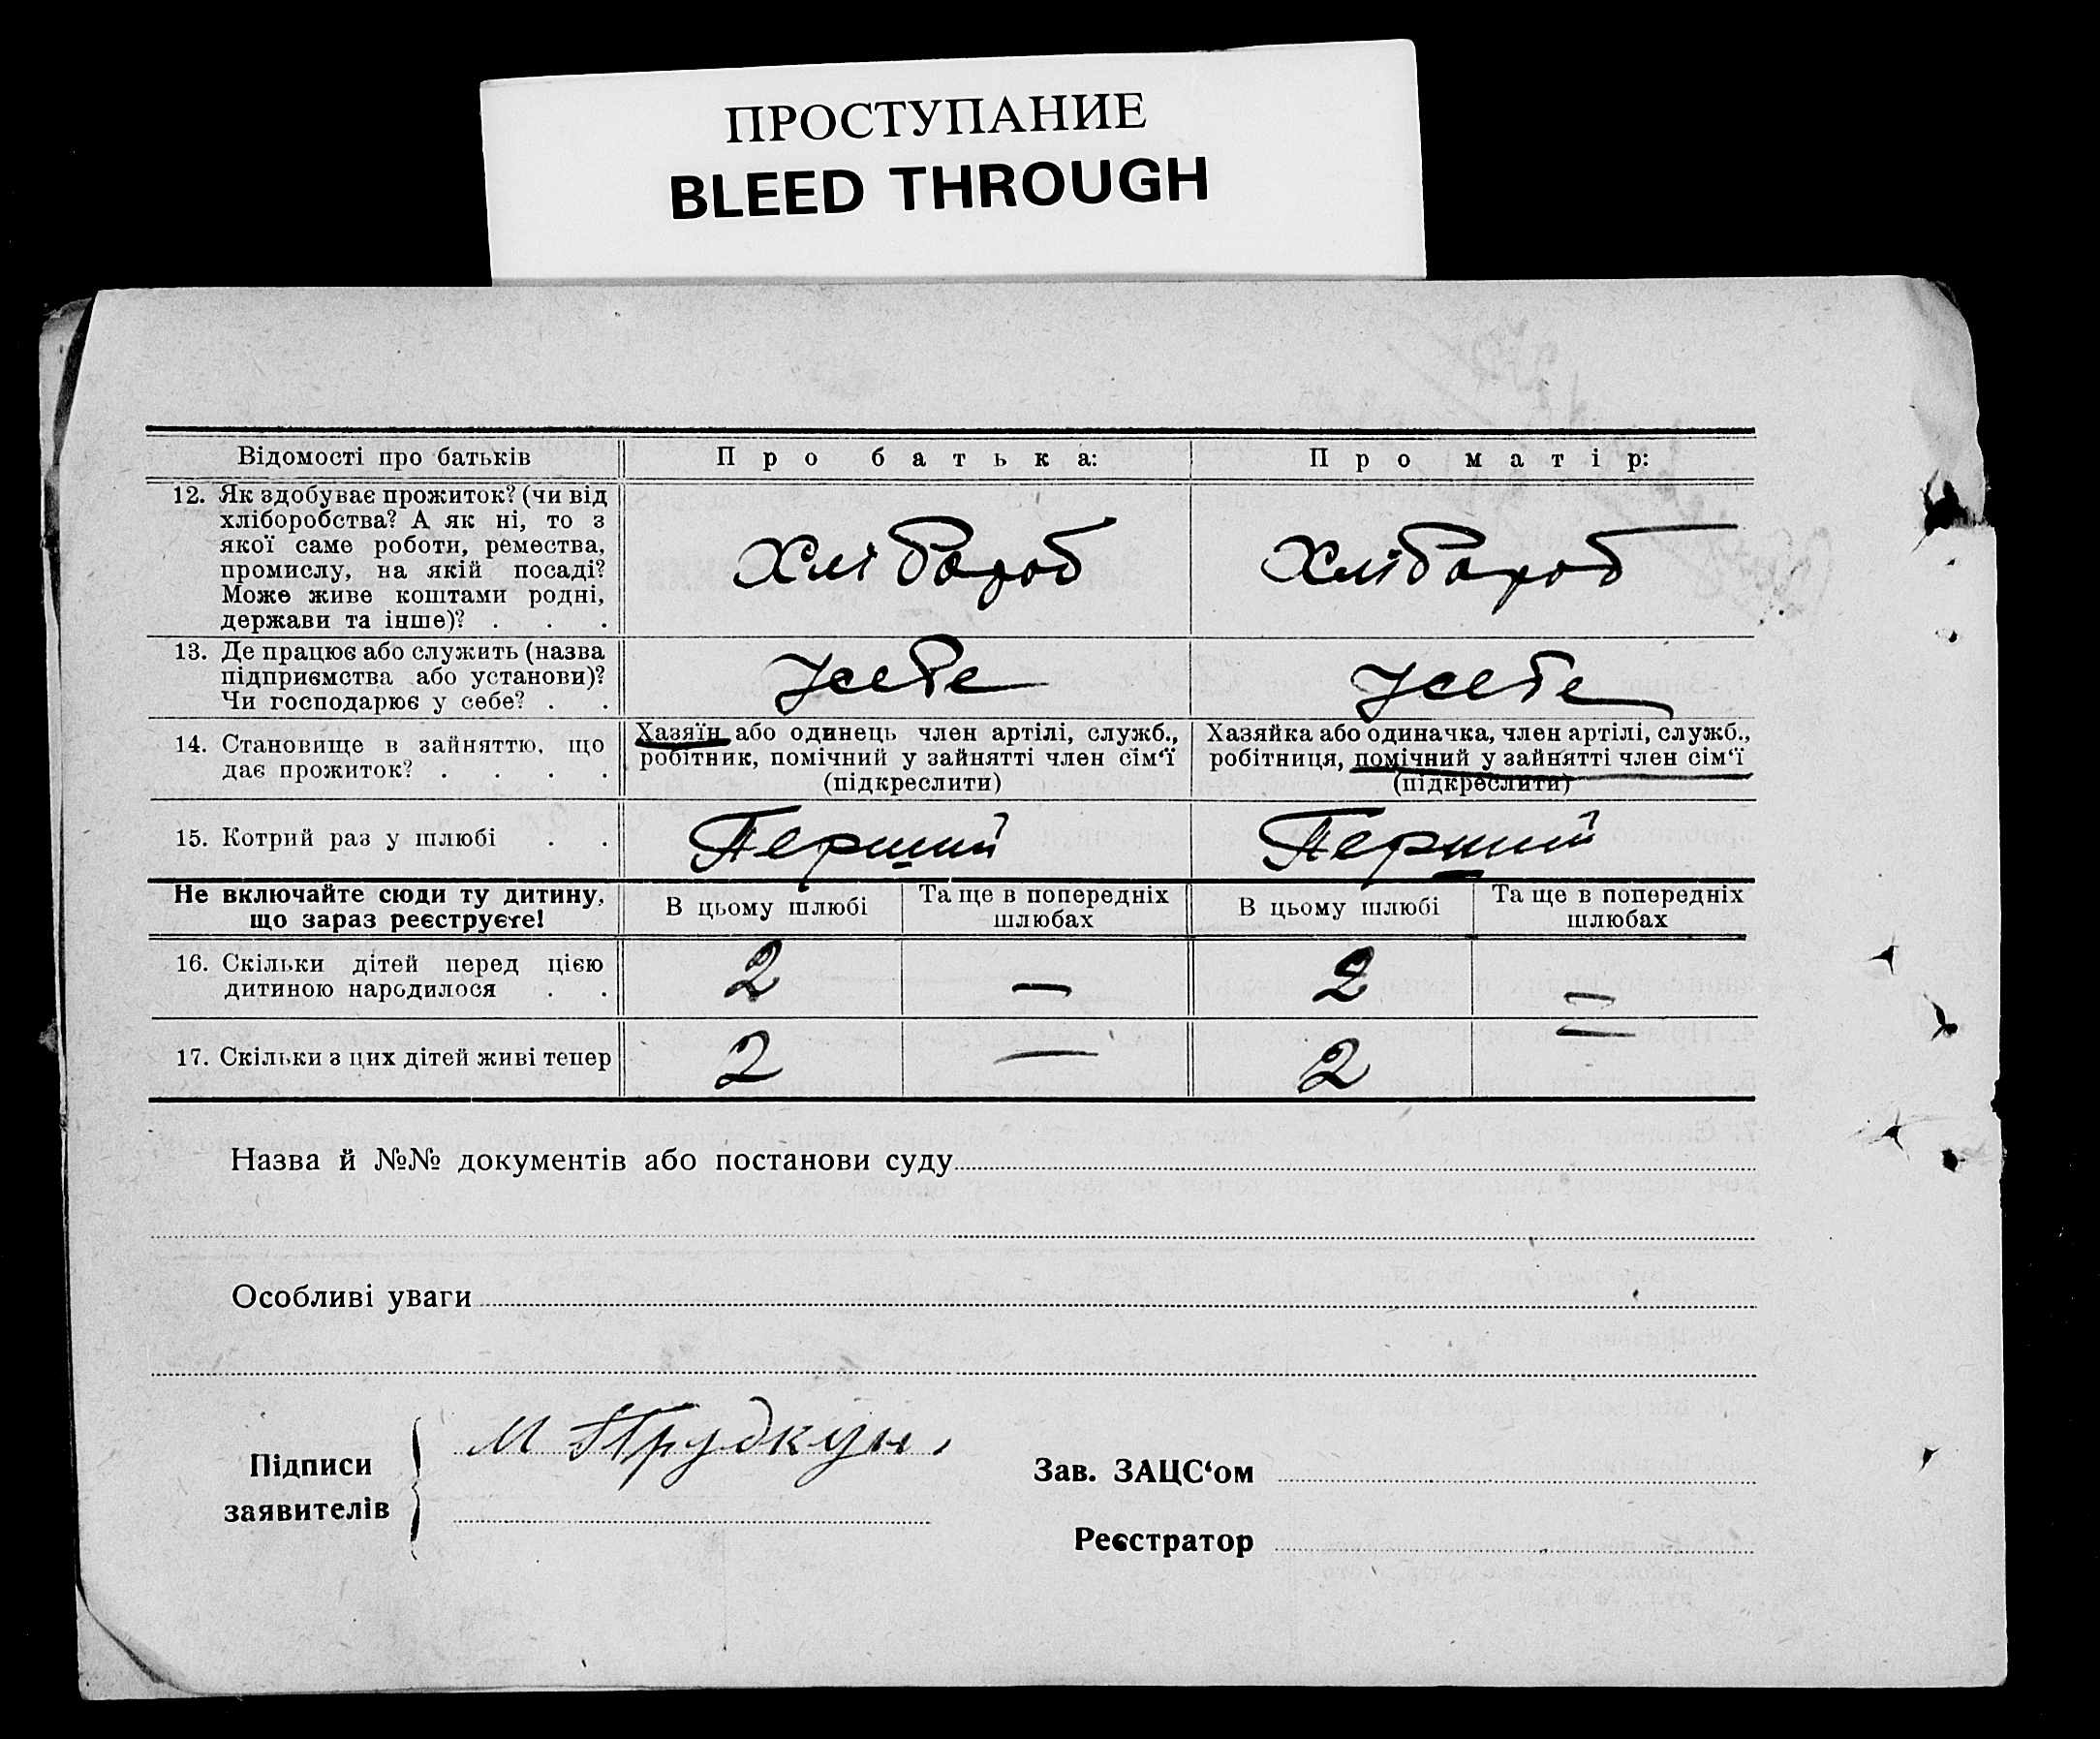 ПРОСТУПАНИЕ
BLEED THROUGH
Відомості про батьків
Про батька:
Про матір:
12. Як здобуває прожиток? (чи від
хліборобства? А як ні, то з
якої саме роботи, ремества,
промислу, на якій посаді?
Може живе коштами родні,
держави та інше)? . . .
Хлібороб
Хлібороб
13. Де працює або служить (назва
підприємства або установи)?
Чи господарює у себе? . .
У себе
У себе
14. Становище в зайняттю, що
дає прожиток? . . . .
Хазяїн або одинець член артілі, служб.,
робітник, помічний у зайнятті член сім‘ї
(підкреслити)
Хазяйка або одиначка, член артілі, служб.,
робітниця, помічний у зайнятті член сім‘ї
(підкреслити)
15. Котрий раз у шлюбі . .
Перший
Перший
Не включайте сюди ту дитину,
що зараз реєструєте!
В цьому шлюбі
Та ще в попередніх
шлюбах
В цьому шлюбі
Та ще в попередніх
шлюбах
16. Скільки дітей перед цією
дитиною народилося . .
2
—
2
—
17. Скільки з цих дітей живі тепер
2
—
2
—
Назва й №№ документів або постанови суду
Особливі уваги
Підписи
заявителів
М Прудкун.
Зав. ЗАЦС‘ом
Реєстратор